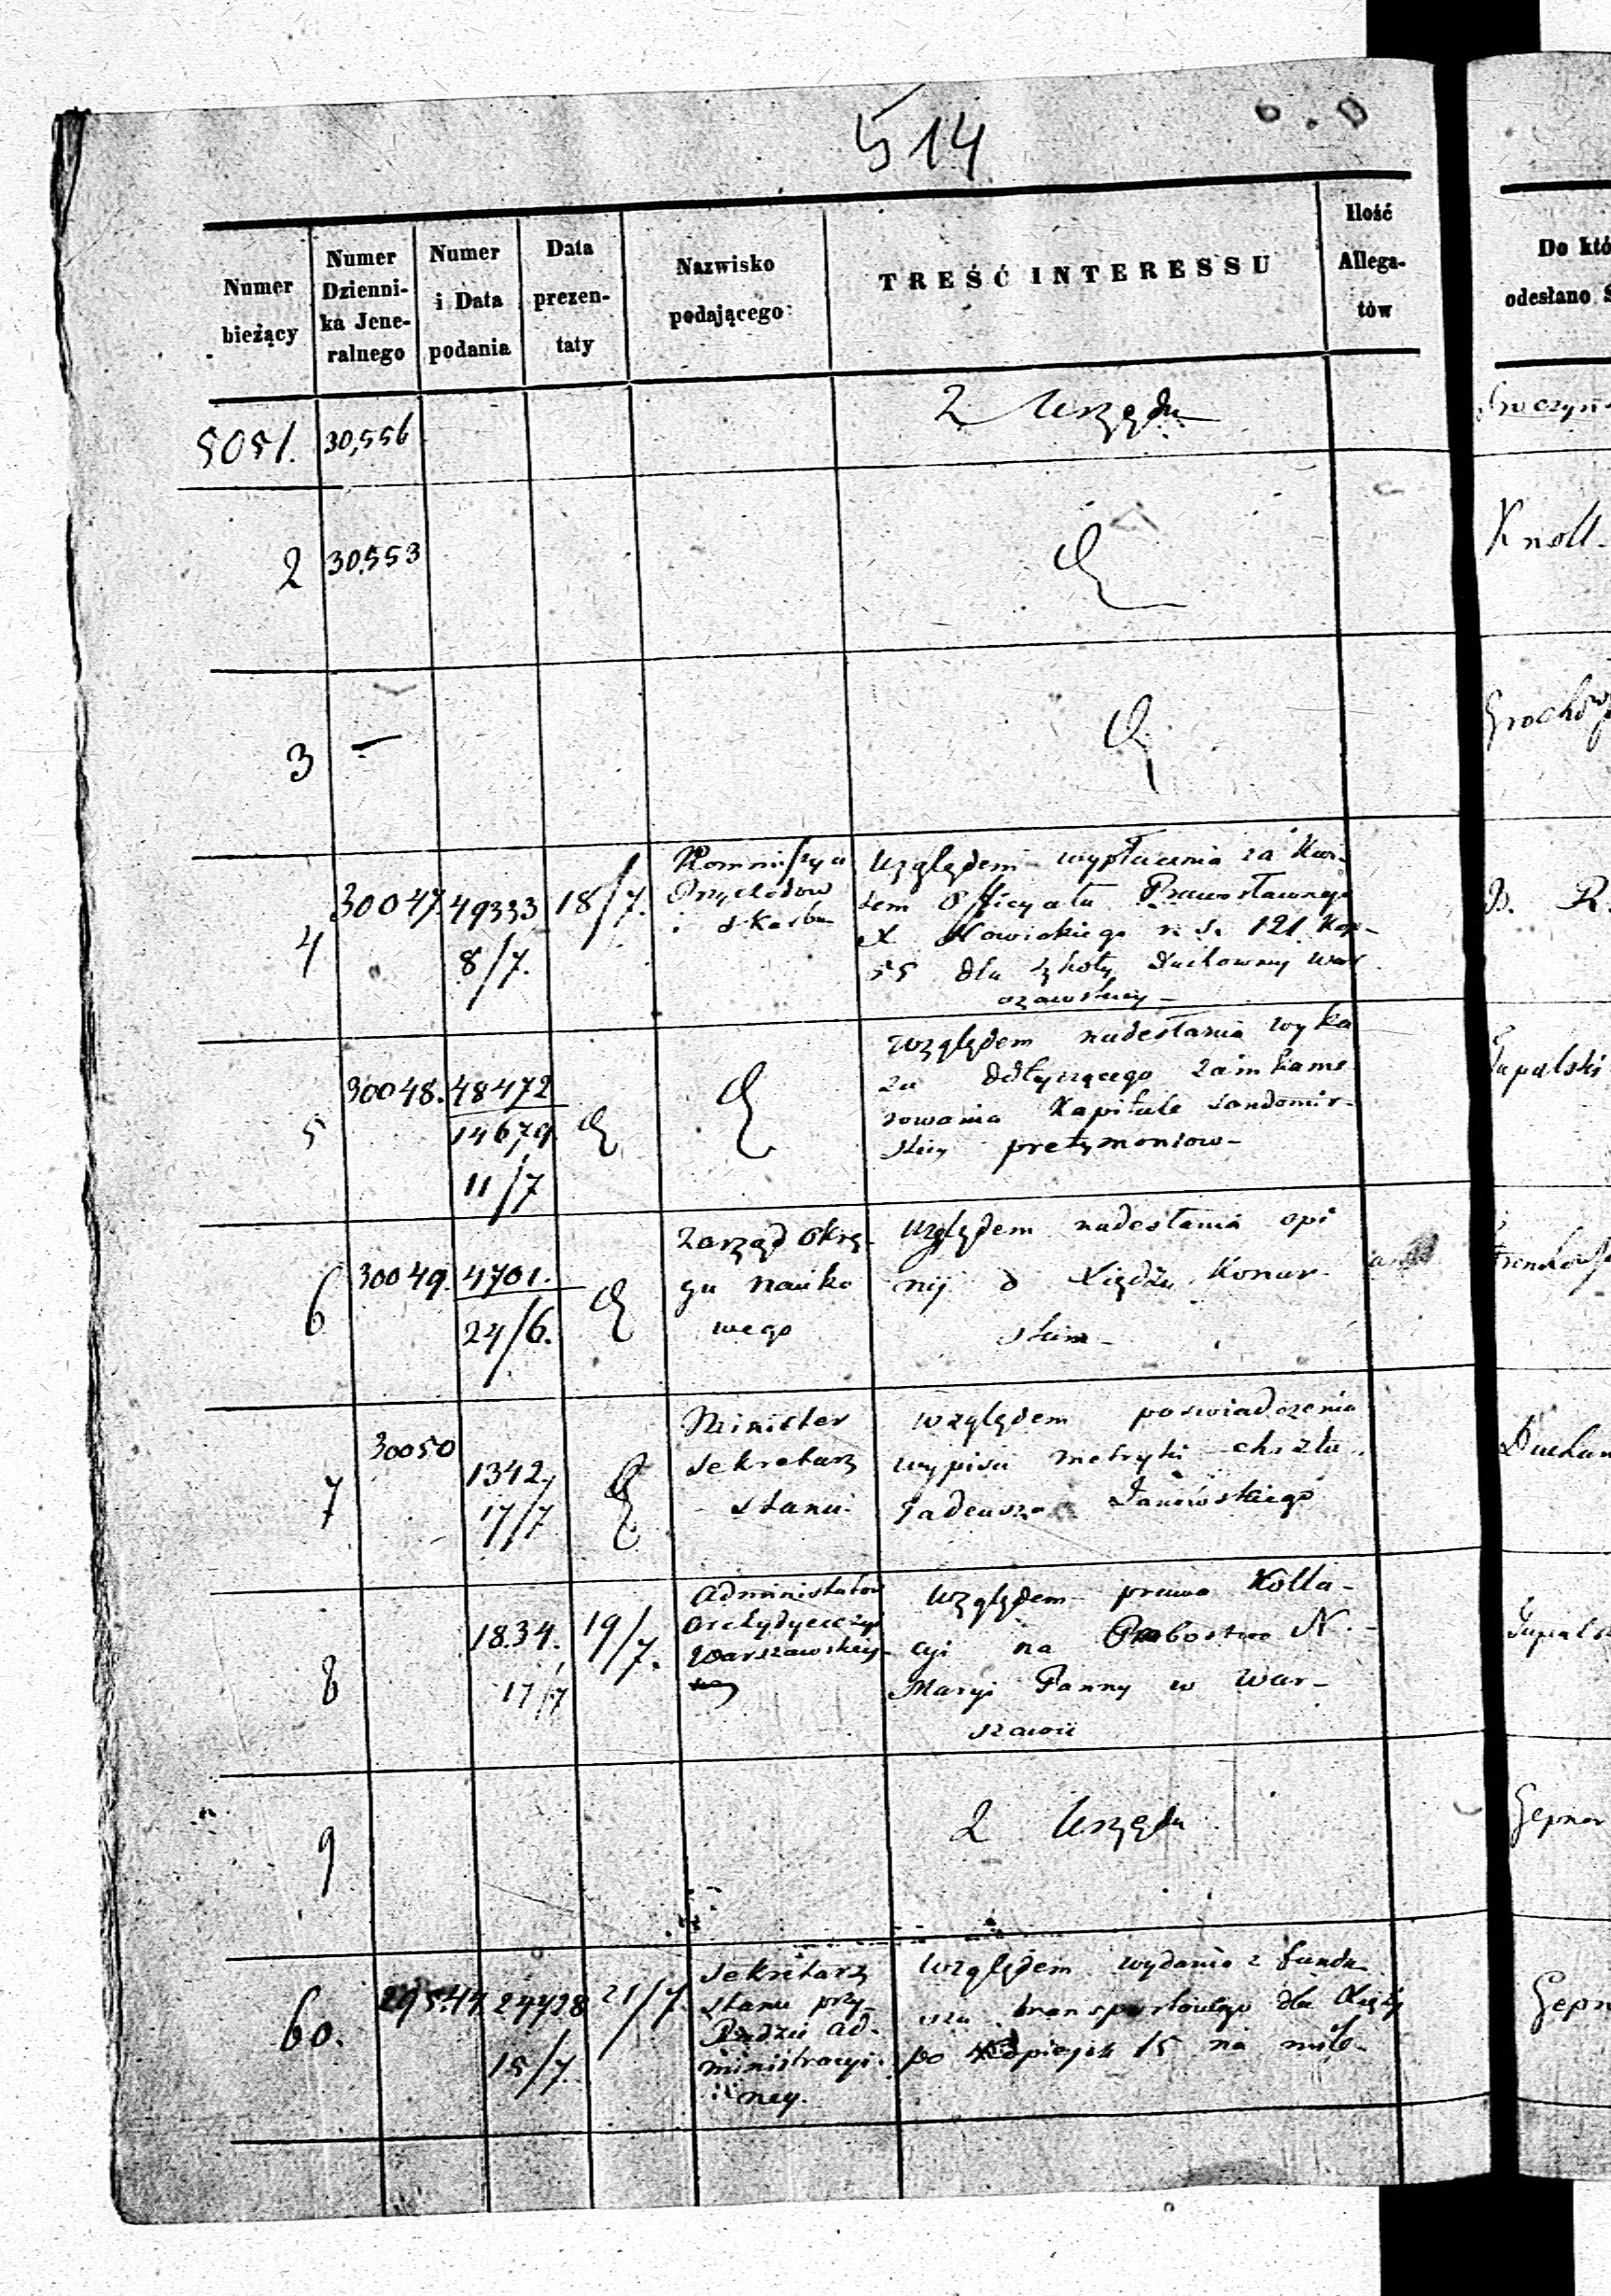 514
Numer bieżący
Numer Dzienni-ka Jene-ralnego
Numer i Data podania
Data prezen-taty
Nazwisko podającego
TREŚĆ INTERESSU
Ilość Allega-tów
Do któ
odesłano S
5051. 30,556 Z Urzędu
2 30,553
Knoll
3 —
Grochow
4 30047. 49333 8/7. 18/7.
Kommissya
Przychodów
i Skarbu
Względem wypłacenia za Kwi-
tem Officyała Prawosławnego
X Nowickiego r. s. 121 Kop-
55 dla szkoły Duchowney War
szawskiey –
B. R.
5 30048. 48472 14679 11/7
względem nadesłania wyka
zu dotyczącego zainkame
rowania Kapitule Sandomir-
skiey prestymoniow –
Tupalski
6 30049. 4701. 24/6.
Zarząd Okrę-
gu Nauko
wego
Względem nadesłania opi
nij o Xiędzu Konar-
skim –
7 30050 1342, 17/7
Minister
Sekretarz
Stanu
względem poswiadczenia
wypisu metryki chrztu
Tadeusza Janowskiego
8 1834. 17/7 19/7.
Administrator
Archydyecezyi
Warszawskiey
Względem prawa Kolla-
cyi na Probostwo N.
Maryi Panny w War-
szawie
9 Z Urzędu
Gepner
60. 29544. 24728 15/7. 21/7.
Sekretarz
Stanu przy
Radzie Ad-
ministracyi-
ney.
Względem wydania z fundu
szu transportowego dla Xięży
po Kopiejek 15 na milę.
Gepn